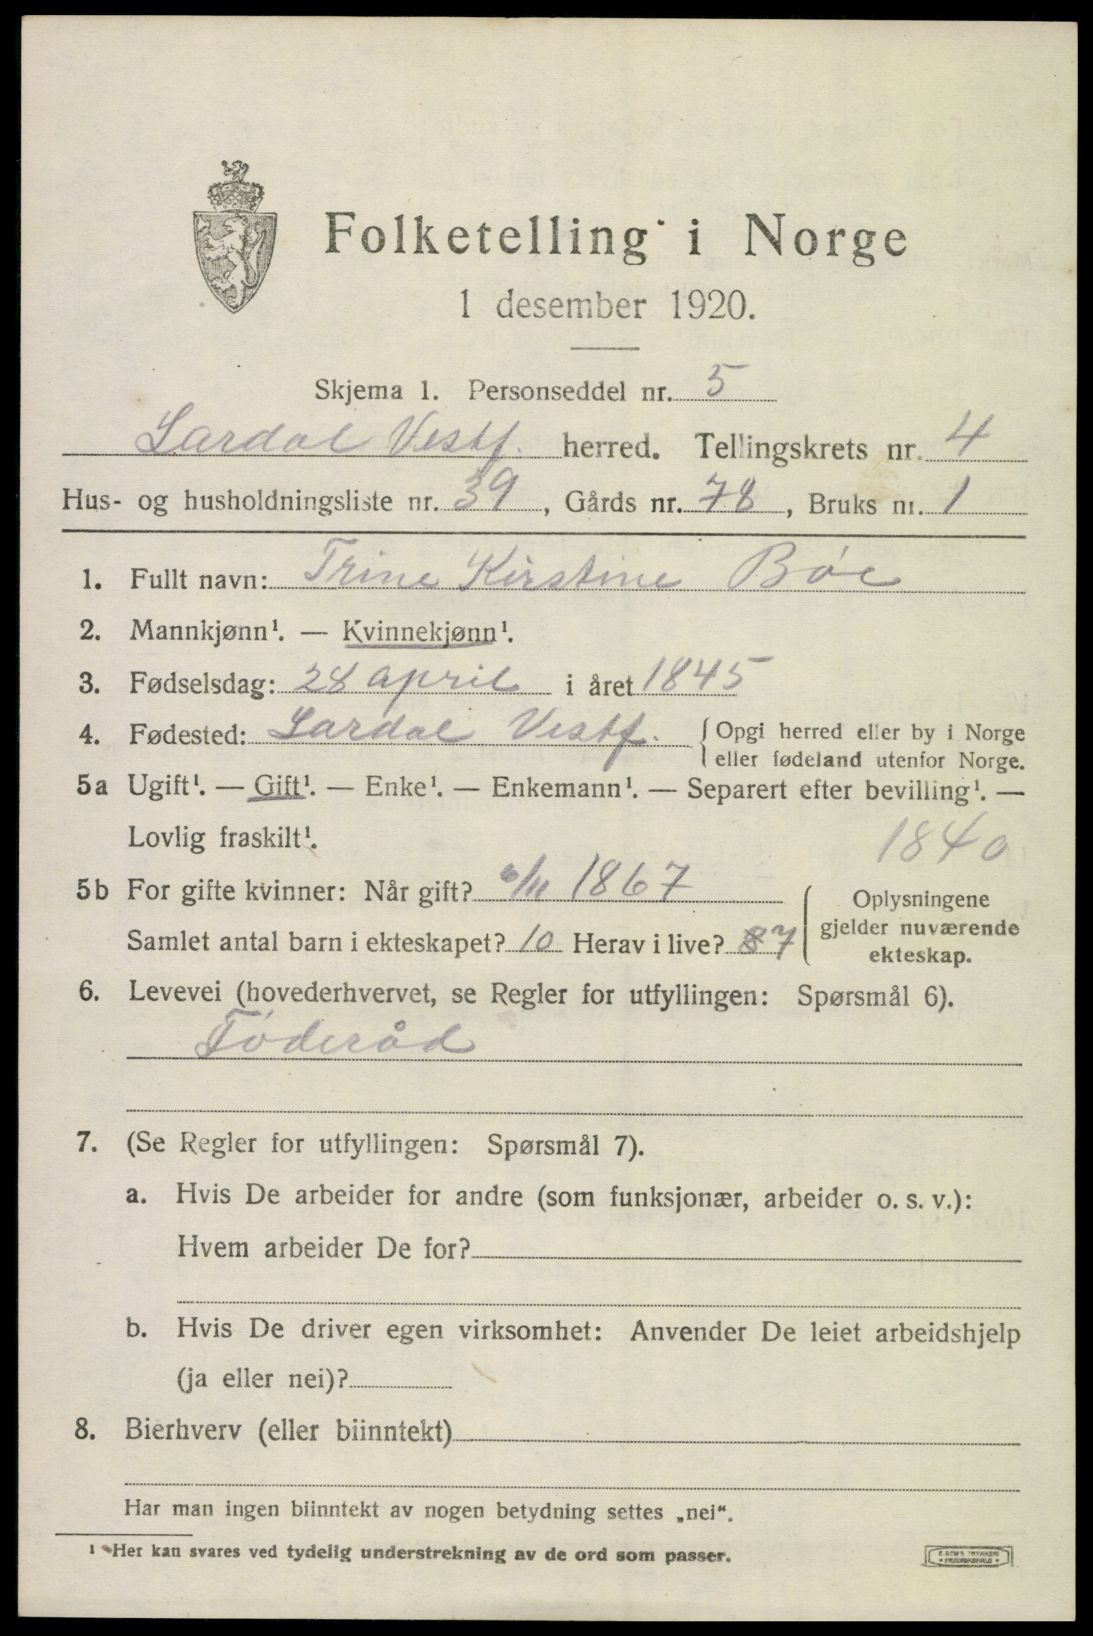 Folketelling i Norge
1 desember 1920.
Skjema 1. Personseddel nr. 5
Lardal Vestf. herred. Tellingskrets nr. 4
Hus- og husholdningsliste nr. 39, Gårds nr. 78, Bruks nr. 1
1. Fullt navn: Trine Kirstine Bøe
2. Mannkjønn¹. — Kvinnekjønn¹.
3. Fødselsdag: 28 april i året 1845
4. Fødested: Lardal Vestf. { Opgi herred eller by i Norge
eller fødeland utenfor Norge.
5a Ugift¹. — Gift¹. — Enke¹. — Enkemann¹. — Separert efter bevilling¹. —
Lovlig fraskilt¹. 1840
5b For gifte kvinner: Når gift? /11 1867
Samlet antal barn i ekteskapet? 10 Herav i live? 7
{ Oplysningene
gjelder nuværende
ekteskap.
6. Levevei (hovederhvervet, se Regler for utfyllingen: Spørsmål 6).
Føderåd
7. (Se Regler for utfyllingen: Spørsmål 7).
a. Hvis De arbeider for andre (som funksjonær, arbeider o. s. v.):
Hvem arbeider De for?
b. Hvis De driver egen virksomhet: Anvender De leiet arbeidshjelp
(ja eller nei)?
8. Bierhverv (eller biinntekt)
Har man ingen biinntekt av nogen betydning settes „nei“.
¹ Her kan svares ved tydelig understrekning av de ord som passer.